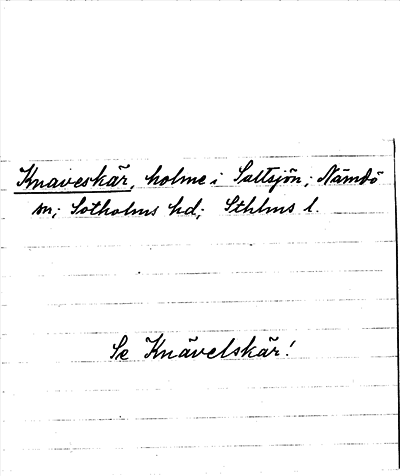 Knaveskär, holme i Saltsjön; Nämdö
sn; Sotholms hd; Sthlms l.
Se Knävelskär!